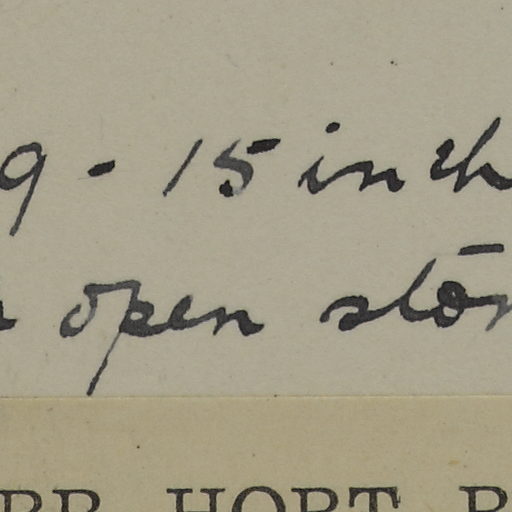 9 - 15 inch
open ston
HORT